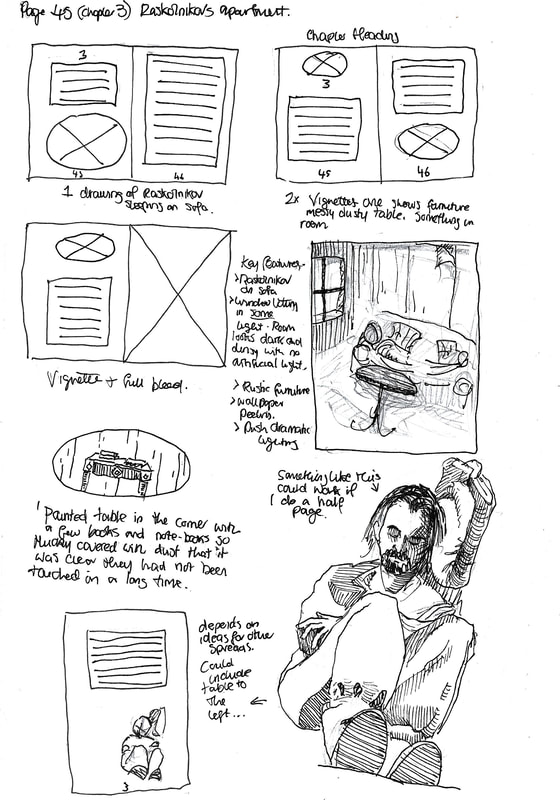 Page 45 (chapter 3) Raskolnikovs apartment.
3
43
44
1 drawing of Raskolnikov
sleeping on sofa.
Chapter Heading
3
45
46
2x Vignettes one shows furniture
messy dusty table. Something in
room
Vignette + full bleed.
Key features-
> Raskolnikov
on sofa
> window letting
in some
light - Room
looks dark and
dingy with no
artificial light.
> Rustic furniture
> wallpaper
Peeling.
> Push dramatic
lighting
' Painted table in the corner with
a few books and note-books so
thickly covered with dust that it
was clear they had not been
touched in a long time.
Something like this
could work if
I do a half
page.
depends on
ideas for other
spreads.
Could
include
table to
the
left...
3